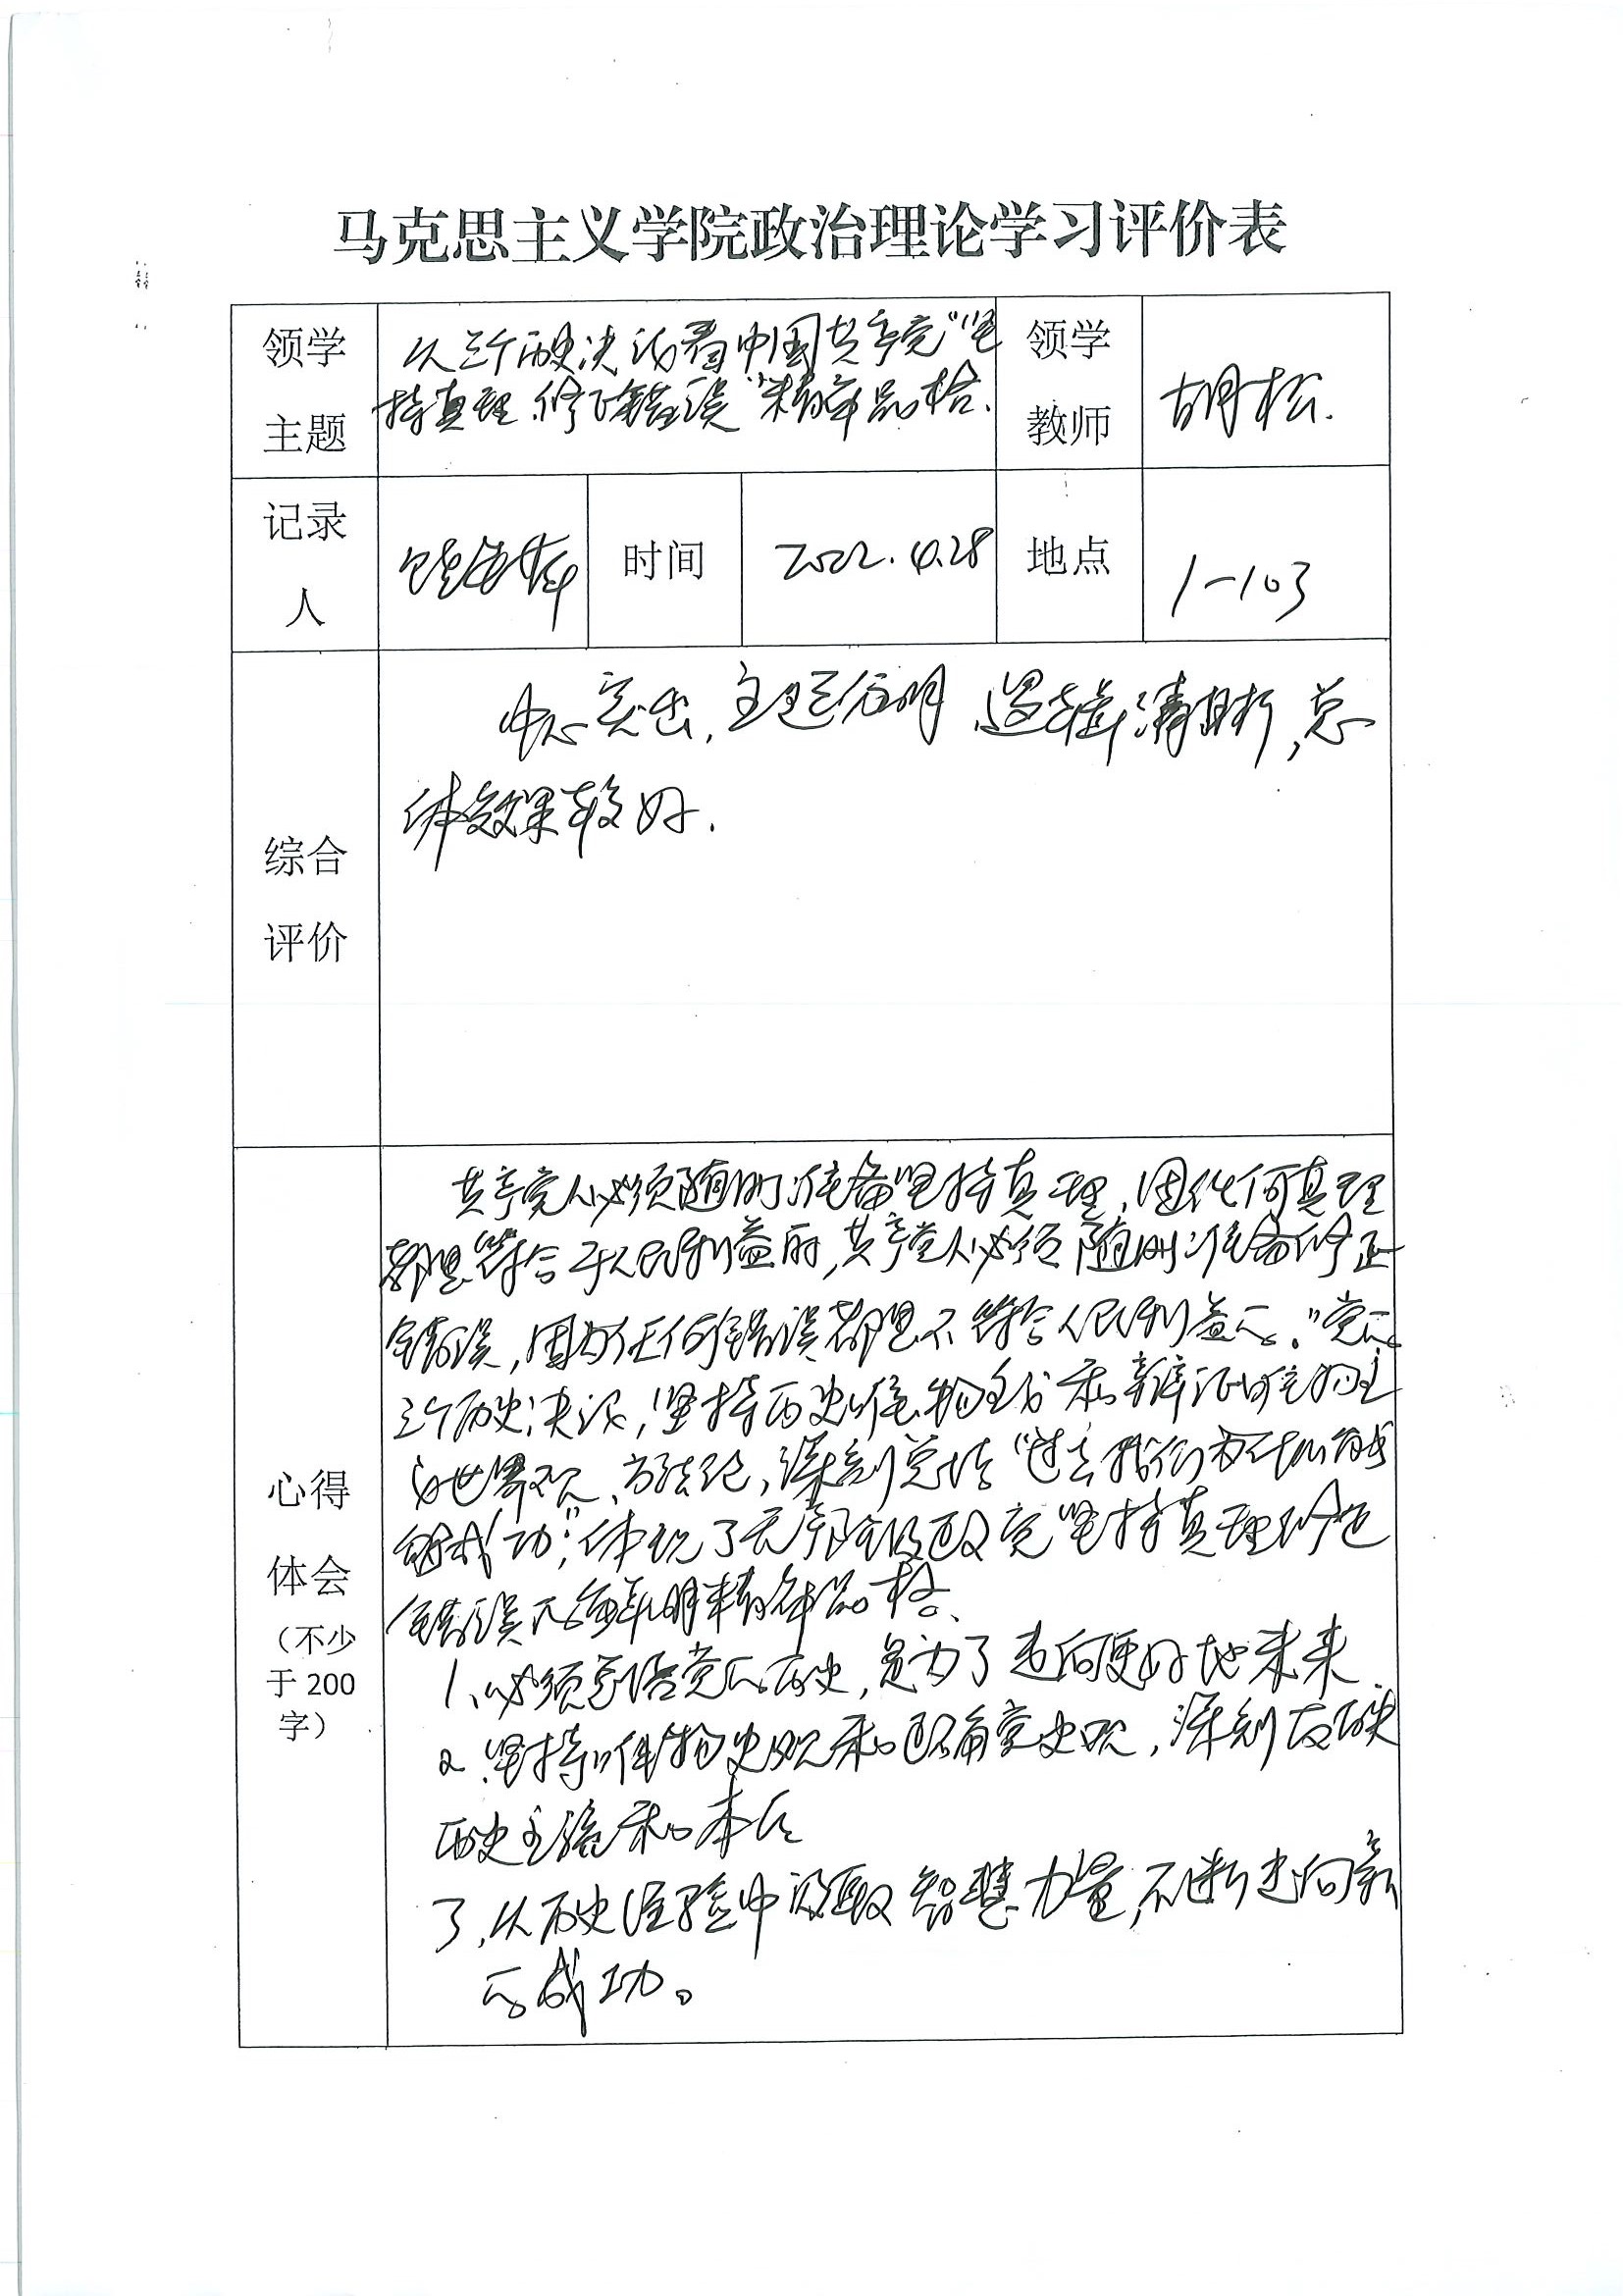 马克思主义学院政治理论学习评价表
领学主题
从三个历史决议看中国共产党“坚
持真理、修正错误”精神品格.
领学教师
胡松.
记录人
时间
2022.4.28
地点
1-103
综合评价
中心突出,主题鲜明,逻辑清晰,总
体效果较好.
心得体会
(不少于200字)
共产党人必须随时准备坚持真理,因任何真理
都是符合于人民利益的,共产党人必须随时准备修正
错误,因为任何错误都是不符合人民利益的.”党的
三个历史决议,坚持历史唯物主义和辩证唯物主
义世界观、方法论,深刻总结“过去我们为什么
能成功”,体现了无产阶级政党坚持真理修正
错误的鲜明精神品格.
1、必须总结党的历史,是为了走向更好地未来
2.坚持唯物史观和正确党史观,深刻
历史主流和本质
3.从历史经验中汲取智慧力量,不断走向新
的成功。